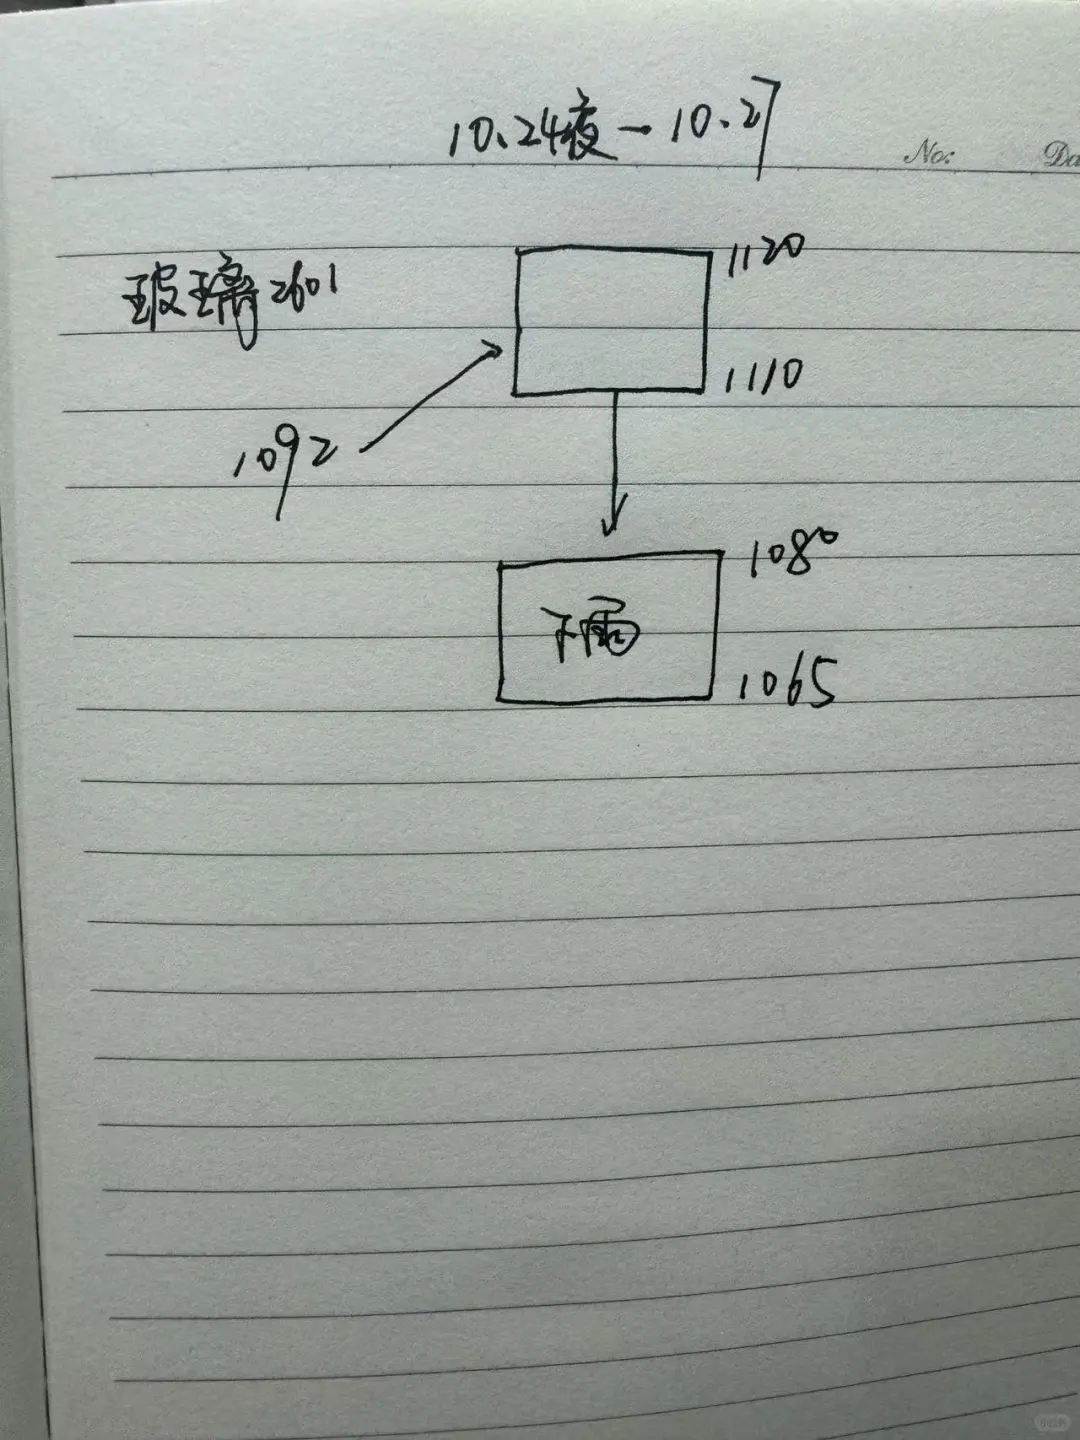 10.24夜一10.27
No:
Da
玻璃2601
1120
1110
1092
1080
下雨
1065
小红书